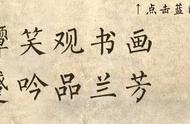 ↑点击蓝
笑观书画
吟品兰芳